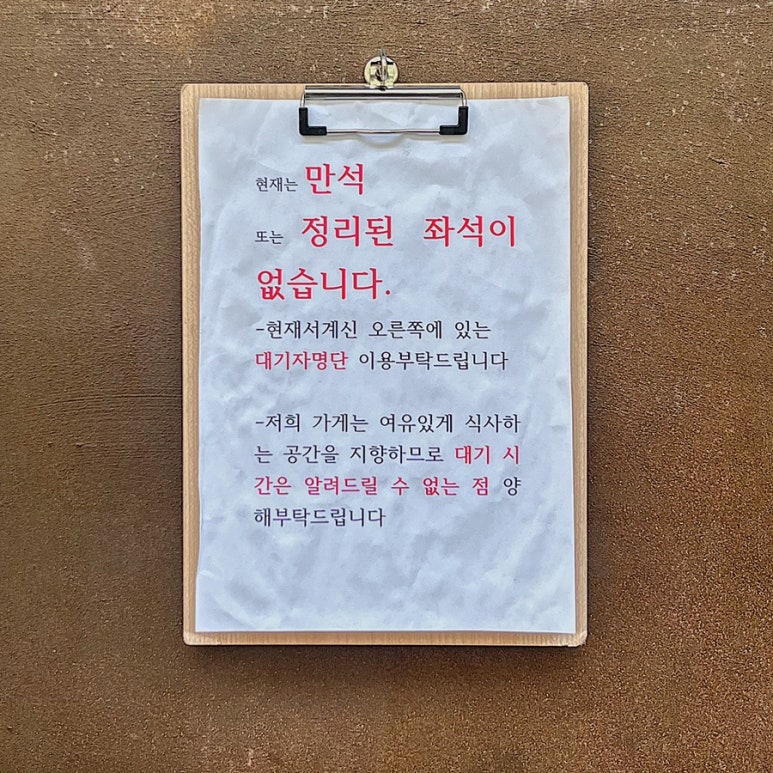 현재는 만석
또는 정리된 좌석이
없습니다.
-현재서계신 오른쪽에 있는
대기자명단 이용부탁드립니다
-저희 가게는 여유있게 식사하
는 공간을 지향하므로 대기 시
간은 알려드릴 수 없는 점 양
해부탁드립니다